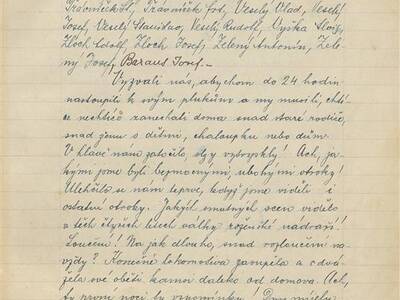 Trávníček Fr., Trávníček Frt, Veselý Vlad, Veselý
Josef, Veselý Stanislav, Veselý Rudolf, Vyšťka Alois,
Zloch Adolf, Zloch Josef, Zelený Antonín, Zele-
ný Josef, Baraus Josef. -
Vyzvali nás, abychom do 24 hodin
nastoupili k svým plukům a my musili, chtě
nechtě zanechati doma snad staré rodiče,
snad ženu s dětmi, chaloupku nebo dům.
V hlavě nám zatočilo, slzy vytryskly! Ach, ja-
kými jsme byli bezmocnými, ubohými otroky!
Ulehčilo se nám teprve, když jsme viděli i
ostatní otroky. Jakých smutných scen vidělo
v těch čtyřech letech války řežovské nádraží!
Loučení! Na jak dlouho, snad rozloučení na-
vždy? Konečně lokomotiva zahoukla a odvá-
žela své oběti kamsi daleko od domova. Ach,
ty první noci, ty vzpomínky! Dnes